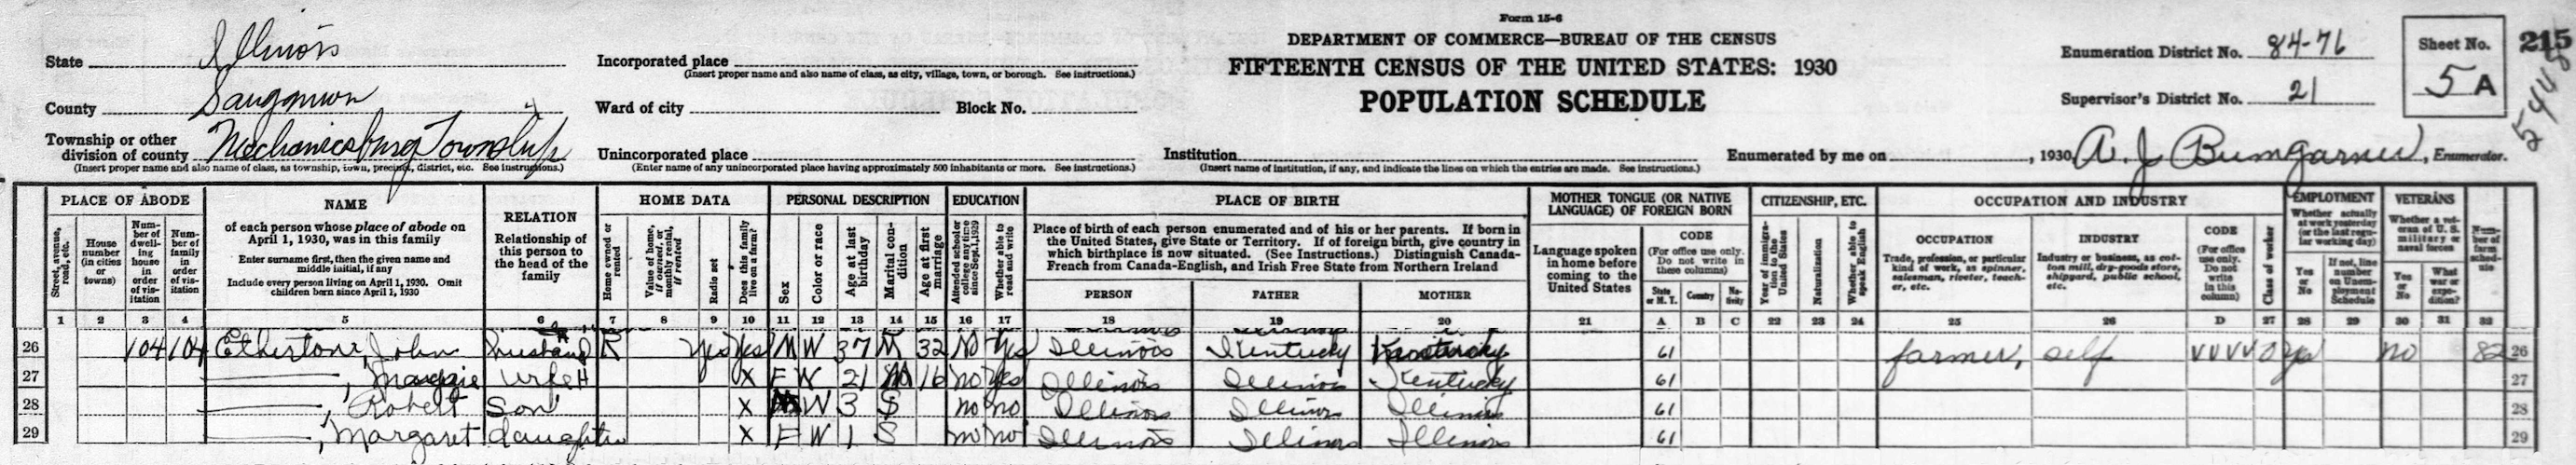 Form 15-6
DEPARTMENT OF COMMERCE—BUREAU OF THE CENSUS
FIFTEENTH CENSUS OF THE UNITED STATES: 1930
POPULATION SCHEDULE
State Illinois
County Sanggmon
Township or other division of county Mechanicsburg Township
(Insert proper name and also name of class, as township, town, precinct, district, etc. See instructions.)
Incorporated place
(Insert proper name and also name of class, as city, village, town, or borough. See instructions.)
Ward of city Block No.
Unincorporated place
(Enter name of any unincorporated place having approximately 500 inhabitants or more. See instructions.)
Institution
(Insert name of institution, if any, and indicate the lines on which the entries are made. See instructions.)
Enumeration District No. 84-76
Supervisor's District No. 21
Sheet No.
5 A
215
5448
Enumerated by me on , 1930, A. J. Bumgarner, Enumerator.
PLACE OF ABODE
Street, avenue, road, etc.
House number (in cities or towns)
Number of dwelling house in order of visitation
Number of family in order of visitation
NAME
of each person whose place of abode on April 1, 1930, was in this family
Enter surname first, then the given name and middle initial, if any
Include every person living on April 1, 1930. Omit children born since April 1, 1930
RELATION
Relationship of this person to the head of the family
HOME DATA
Home owned or rented
Value of home, if owned, or monthly rental, if rented
Radio set
Does this family live on a farm?
PERSONAL DESCRIPTION
Sex
Color or race
Age at last birthday
Marital condition
Age at first marriage
EDUCATION
Attended school or college any time since Sept. 1, 1929
Whether able to read and write
PLACE OF BIRTH
Place of birth of each person enumerated and of his or her parents. If born in the United States, give State or Territory. If of foreign birth, give country in which birthplace is now situated. (See Instructions.) Distinguish Canada-French from Canada-English, and Irish Free State from Northern Ireland
PERSON FATHER MOTHER
MOTHER TONGUE (OR NATIVE LANGUAGE) OF FOREIGN BORN
Language spoken in home before coming to the United States
CODE
(For office use only. Do not write in these columns)
State or M. T. Country Nativity
CITIZENSHIP, ETC.
Year of immigration to the United States
Naturalization
Whether able to speak English
OCCUPATION AND INDUSTRY
OCCUPATION
Trade, profession, or particular kind of work, as spinner, salesman, riveter, teacher, etc.
INDUSTRY
Industry or business, as cotton mill, dry-goods store, shipyard, public school, etc.
CODE
(For office use only. Do not write in this column)
Class of worker
EMPLOYMENT
Whether actually at work yesterday (or the last regular working day)
Yes or No
If not, line number on Unemployment Schedule
VETERANS
Whether a veteran of U. S. military or naval forces
Yes or No
What war or expedition?
Number of farm schedule
1 2 3 4 5 6 7 8 9 10 11 12 13 14 15 16 17 18 19 20 21 A B C 22 23 24 25 26 D 27 28 29 30 31 32
26 104 104 Etherton, John husband R Yes Yes M W 37 M 32 No Yes Illinois Kentucky Kentucky 61 farmer, self VVVV O Yes no 82 26
27 ———, Maggie wife H X F W 21 M 16 no Yes Illinois Illinois Kentucky 61 27
28 ———, Robert Son X M W 3 S no no Illinois Illinois Illinois 61 28
29 ———, Margaret daughter X F W 1 S no no Illinois Illinois Illinois 61 29